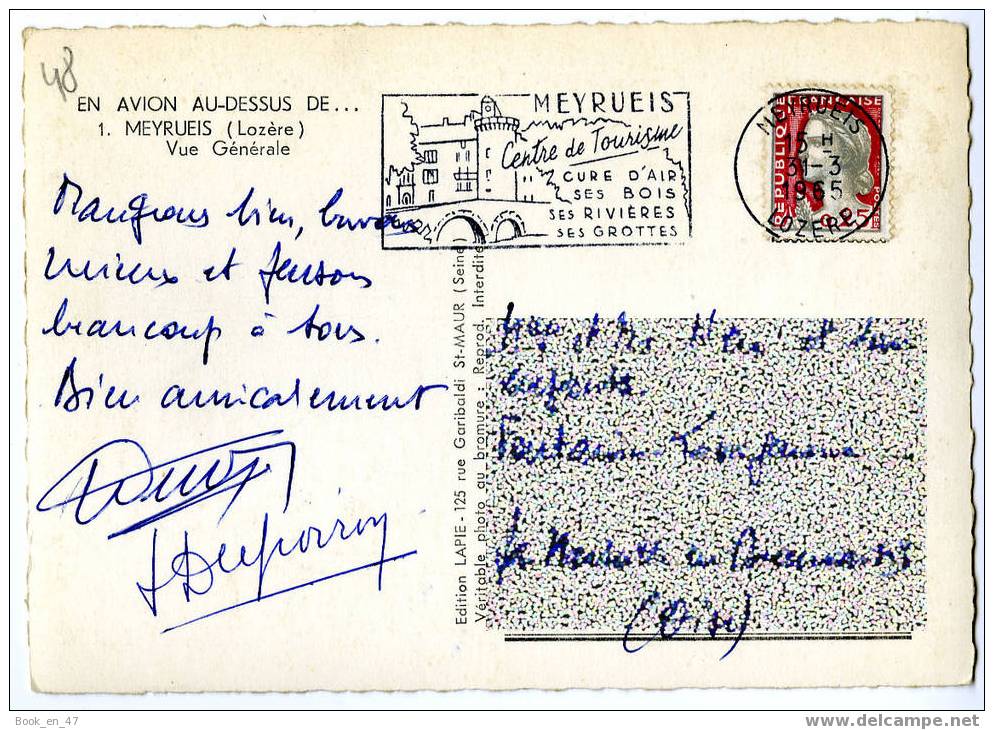 48
EN AVION AU-DESSUS DE...
1. MEYRUEIS (Lozère)
Vue Générale
Mangeons bien, buvons
mieux et pensons
beaucoup à vous.
Bien amicalement
MEYRUEIS
Centre de Tourisme
CURE D'AIR
SES BOIS
SES RIVIÈRES
SES GROTTES
MEYRUEIS
15 H
31-3
1965
LOZERE
REPUBLIQUE FRANÇAISE
POSTES
0,25
Edition LAPIE - 125 rue Garibaldi St-MAUR (Seine)
Véritable photo au bromure : Reprod. Interdite
et
enfants
en
(Oise)
Book_en_47
www.delcampe.net